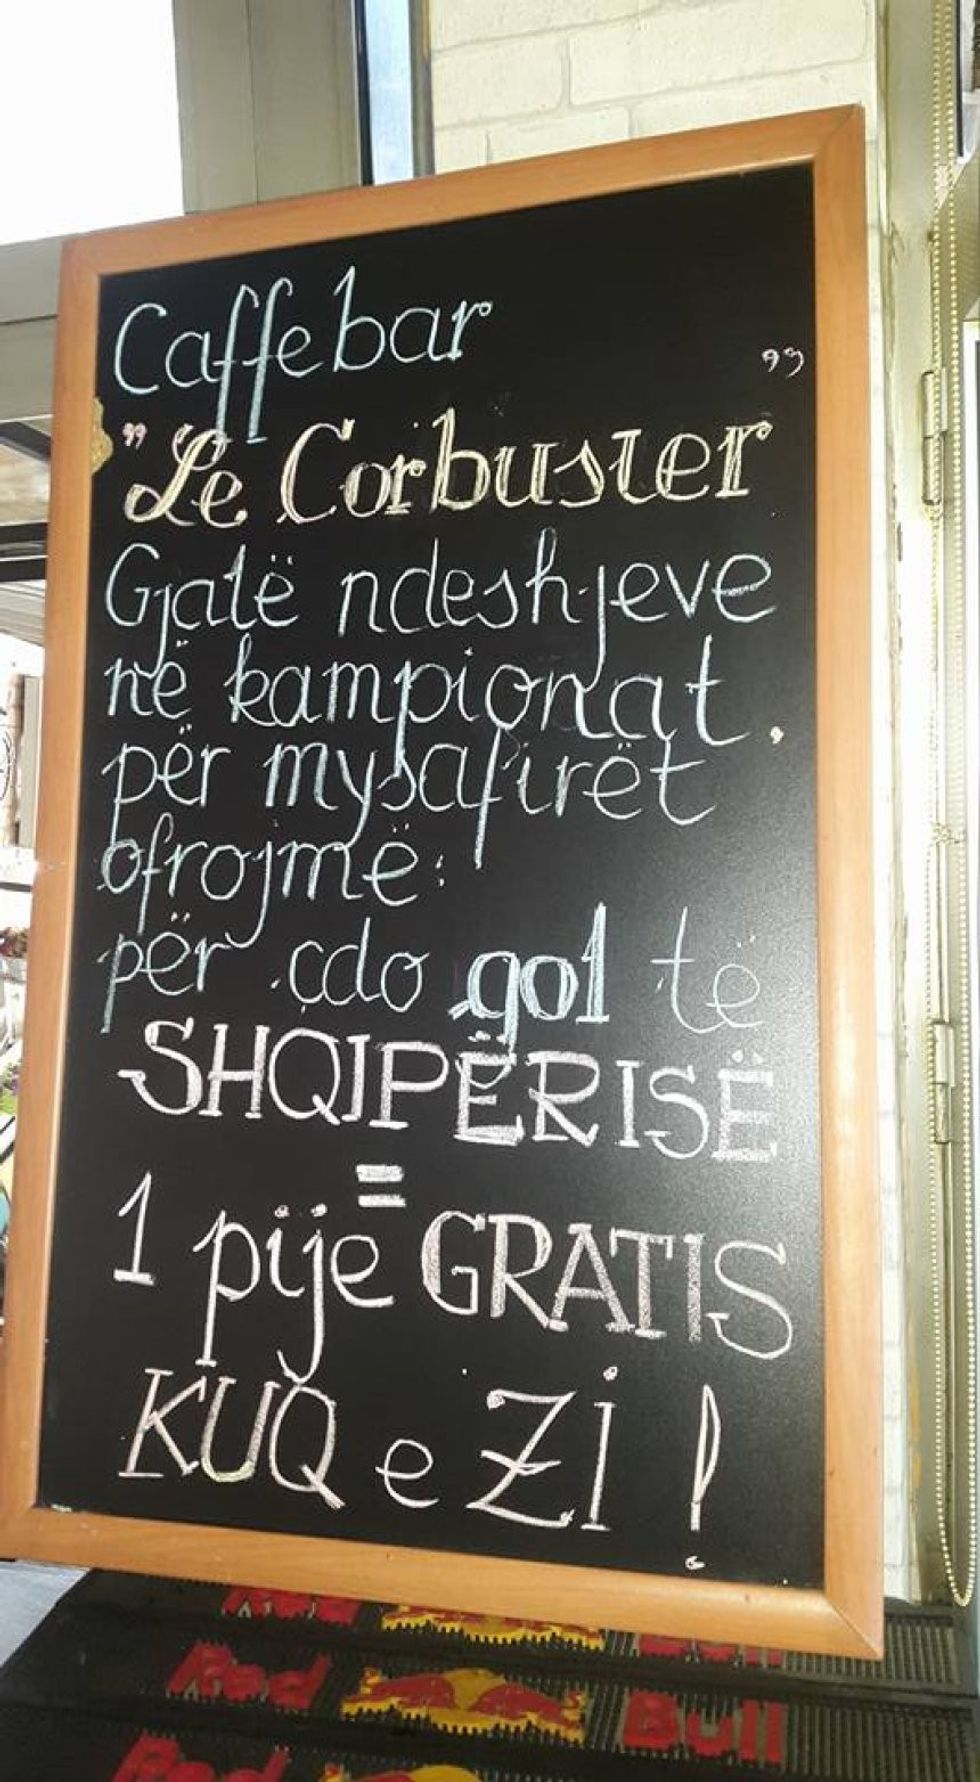 Caffe bar
"Le Corbusier"
Gjatë ndeshjeve
në kampionat,
për mysafirët
ofrojmë:
për çdo gol të
SHQIPËRISË
=
1 pije GRATIS
KUQ e Zi !
Red Bull
Red Bull
Red